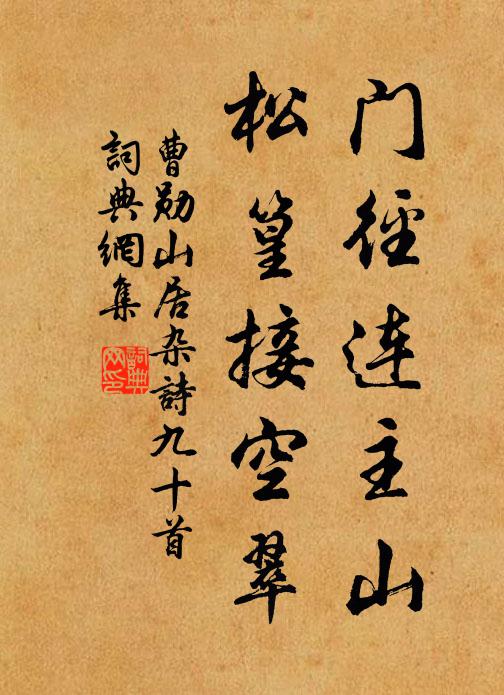 门径连主山
松篁接空翠
曹勋山居杂诗九十首
詞典網集
詞典
网印